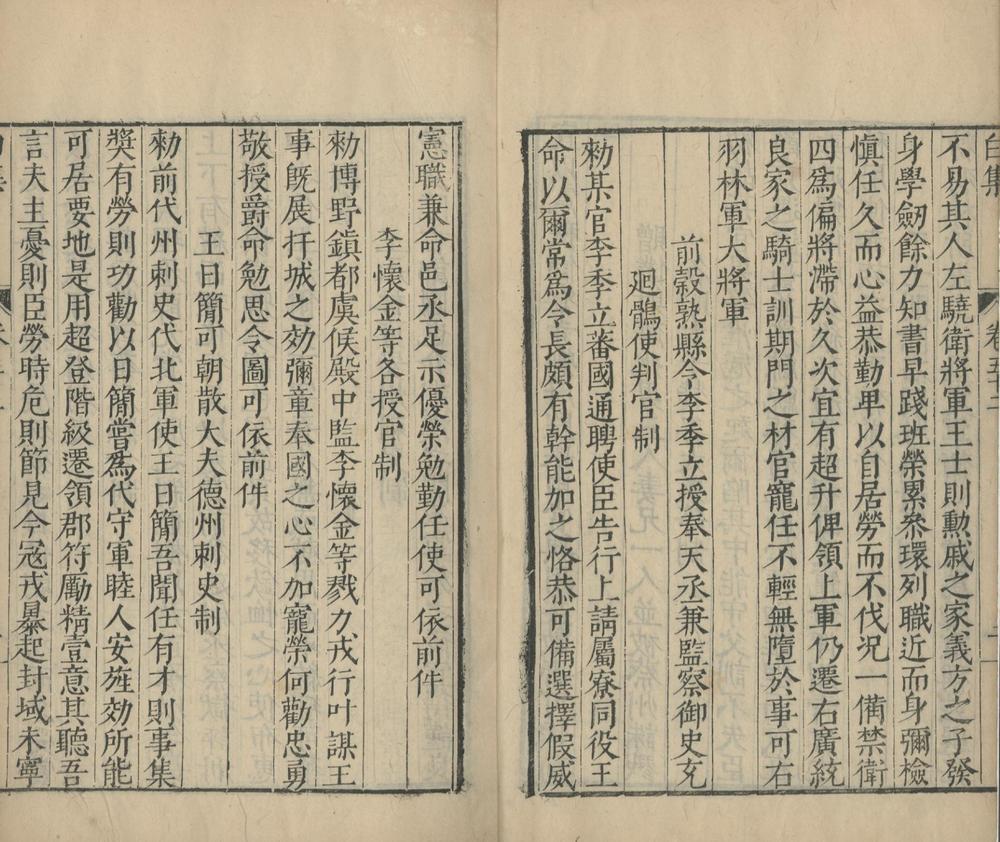 白集
卷五十二
不易其人左驍衛將軍王士則勲戚之家義方之子發
身學劒餘力知書早踐班榮累叅環列職近而身彌檢
愼任久而心益恭勤卑以自居勞而不伐况一備禁衛
四爲偏將滯於久次宜有超升俾領上軍仍遷右廣統
良家之騎士訓期門之材官寵任不輕無墮於事可右
羽林軍大將軍
前糓熟縣令李季立授奉天丞兼監察御史充
廻鶻使判官制
勑某官李季立蕃國通聘使臣告行上請屬寮同役王
命以爾常爲令長頗有幹能加之恪恭可備選擇假威
憲職兼命邑丞足示優榮勉勤任使可依前件
李懷金等各授官制
勑博野鎮都虞候殿中監李懷金等戮力戎行叶謀王
事旣展扞城之効彌章奉國之心不加寵榮何勸忠勇
敬授爵命勉思令圖可依前件
王日簡可朝散大夫德州刺史制
勑前代州刺史代北軍使王日簡吾聞任有才則事集
奬有勞則功勸以日簡嘗爲代守軍睦人安旌効所能
可居要地是用超登階級遷領郡符勵精壹意其聽吾
言夫主憂則臣勞時危則節見今冦戎暴起封域未寧